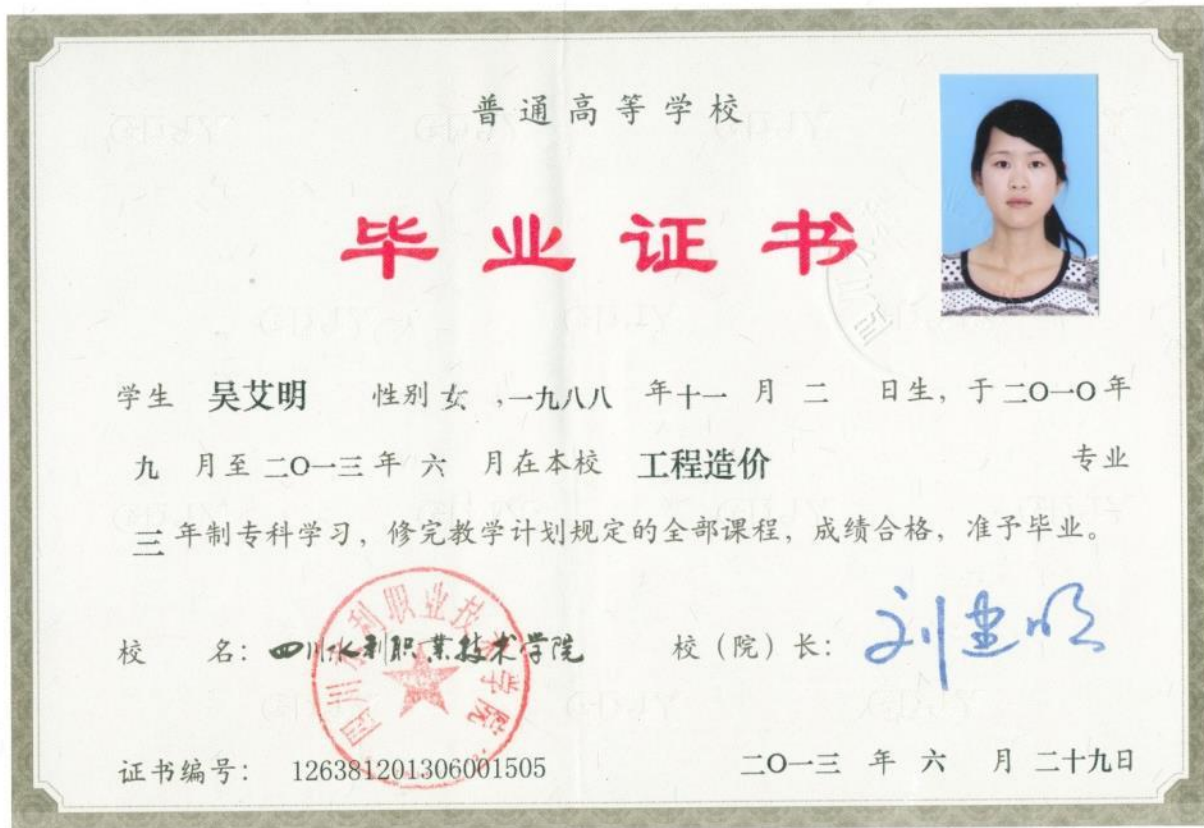 普通高等学校
毕业证书
学生 吴艾明 性别 女 ,一九八八 年 十一 月 二 日生, 于 二O一O 年
九 月至 二O一三 年 六 月在本校 工程造价 专业
三 年制专科学习, 修完教学计划规定的全部课程, 成绩合格, 准予毕业。
校 名: 四川水利职业技术学院 校(院)长: 刘建明
四川水利职业技术学院
证书编号: 126381201306001505 二O一三 年 六 月 二十九日